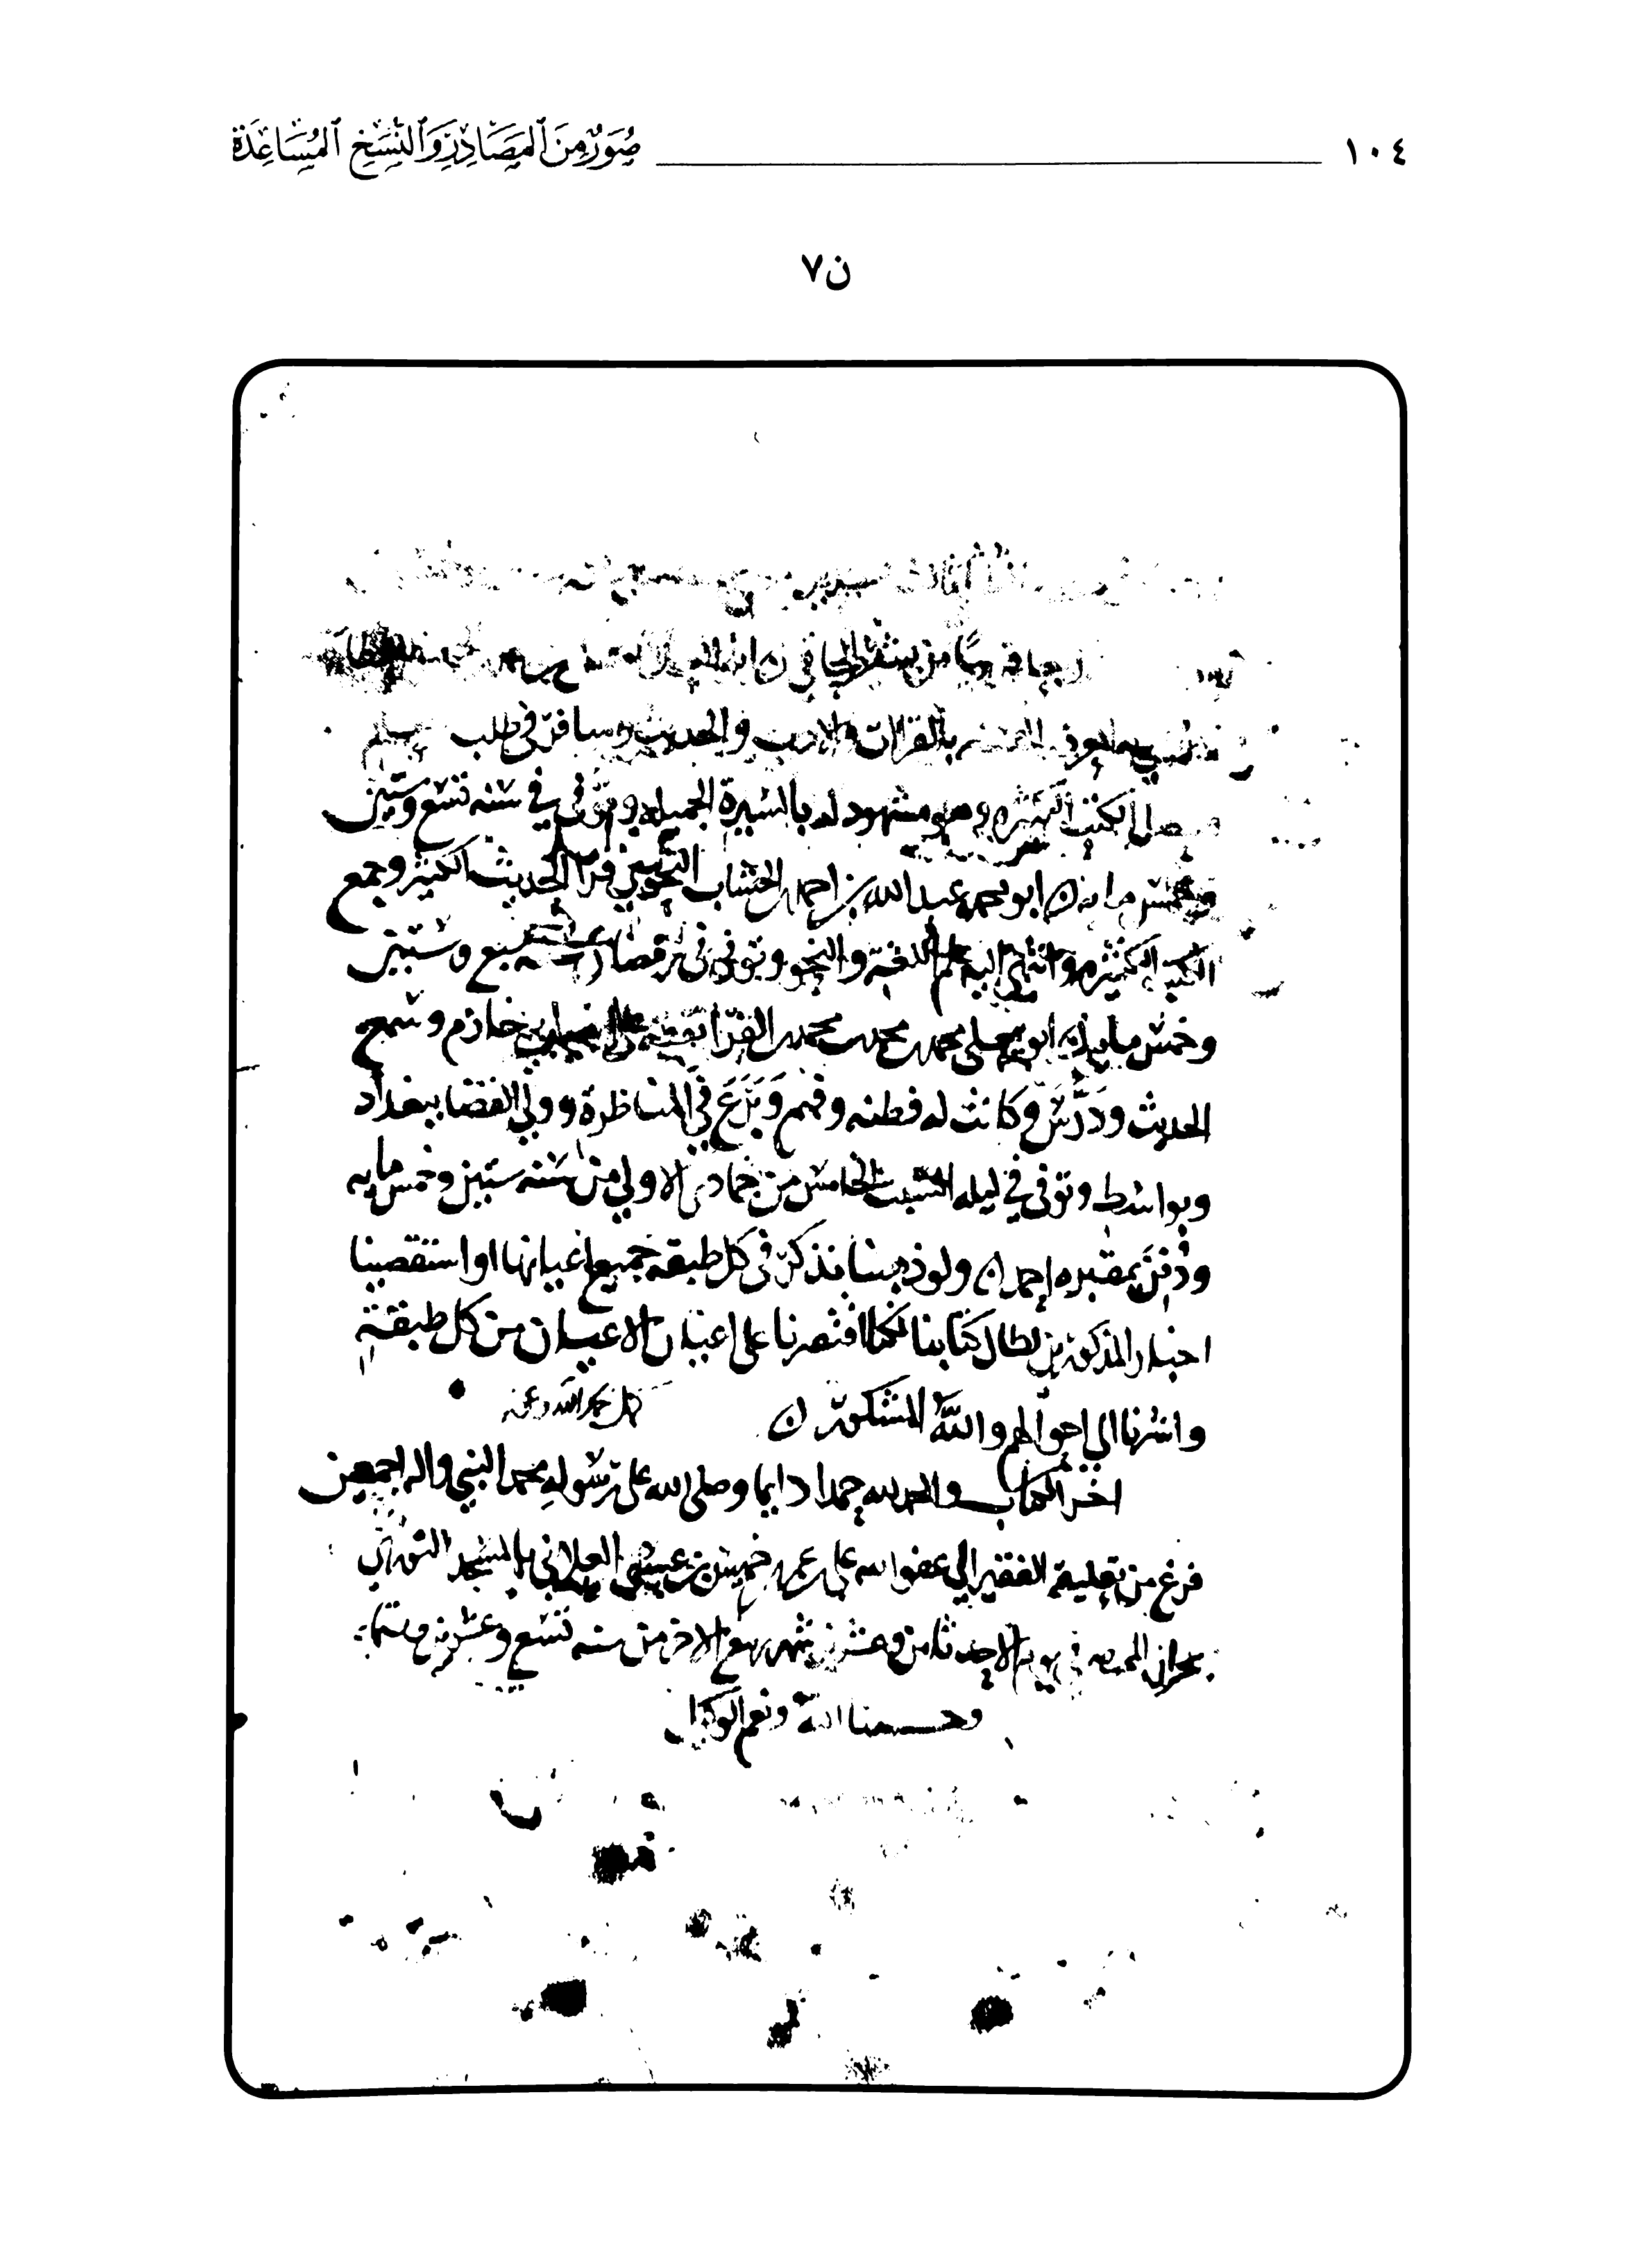 ١٠٤ صُوَرٌ مِنَ ٱلمَصَادِرِ وَٱلنُّسَخِ ٱلمُسَاعِدَةِ
ن٧
من بشر الحافي ن
بالقراات والادب والحديث وسافر في طلب
الكتب الكثيره وهو مشهود له بالسيرة الجميله وتوفى في سنه تسع وستين
وخمس مايه ن ابو محمد عبد الله بن احمد الخشاب النحوي قرا الحديث الكثير وجمع
الكتب الكثيره وانتهى اليه علم اللغة والنحو وتوفى في رمضان سنه سبع وستين
وخمس مايه ن ابو يعلى محمد بن محمد بن محمد الفرا تفقه على ابيه ابي خازم وسمع
الحديث ودرّس وكانت له فطنه وفهم وبَرَعَ في المناظرة وولي القضا ببغداد
وبواسط وتوفى في ليله السبت الخامس من جمادى الاولى من سنه ستين وخمس مايه
ودُفِنَ بمقبره احمد ن ولو ذهبنا نذكر في كل طبقه جميع اعيانها او استقصينا
اخبار المذكورين لطال كتابنا لكنا اقتصرنا على اعيان الاعيان من كل طبقة
واشرنا الى احوالهم والله المشكور ن
كمل بحمد الله وعونه
اخر الكتاب والحمد لله حمدا دايما وصلى الله على رسوله محمد النبي واله اجمعين
فرغ من تعليقه الفقير الى عفو الله علي بن عمر بن خميس بن عيسى بالمسجد
بحران المحروسه في يوم الاحد ثامن وعشرين شهر ربيع الاخر من سنه تسع وعشرين وستمايه
وحسبنا الله ونعم الوكيل